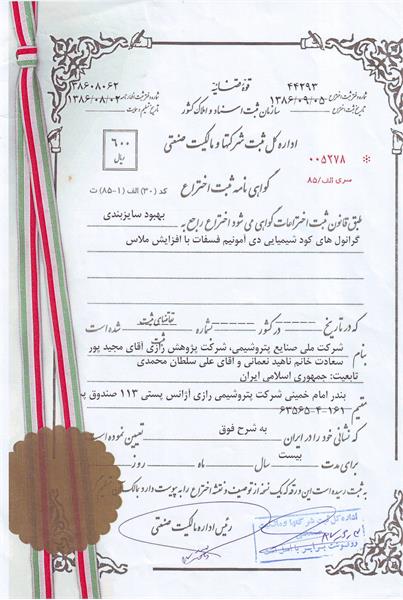 قوه قضائیه
سازمان ثبت اسناد و املاک کشور
۴۴۲۹۳
شماره و دفتر ثبت اختراع
۱۳۸۶/۰۹/۰۵
تاریخ ثبت اختراع
۳۸۶۰۸۰۶۲
شماره و دفتر ثبت اظهارنامه
۱۳۸۶/۰۸/۰۲
اداره کل ثبت شرکتها و مالکیت صنعتی
۶۰۰
ریال
۰۰۵۲۷۸ *
سری الف/۸۵
گواهی نامه ثبت اختراع
کد (۳۰) الف (۱-۸۵) ت
طبق قانون ثبت اختراعات گواهی می شود اختراع راجع به بهبود سایزبندی
گرانول های کود شیمیایی دی آمونیم فسفات با افزایش ملاس
که در تاریخ ----- در کشور ----- شماره تقاضای ثبت شده است
بنام شرکت ملی صنایع پتروشیمی، شرکت پژوهش رازی آقای مجید پور
سعادت خانم ناهید نعمانی و آقای علی سلطان محمدی
تابعیت: جمهوری اسلامی ایران
مقیم بندر امام خمینی شرکت پتروشیمی رازی آژانس پستی ۱۱۳ صندوق پ
۱۶۱-۴-۶۳۵۶۵
که نشانی خود را در ایران به شرح فوق تعیین نموده است
برای مدت بیست سال ماه روز
به ثبت رسیده است این ورقه که یک نسخه از توصیف و نقشه اختراع را به پیوست دارد به مالک آن تسلیم
رئیس اداره مالکیت صنعتی
اداره کل ثبت شرکتها و مالکیت
صنعتی
رونوشت برابر با اصل است